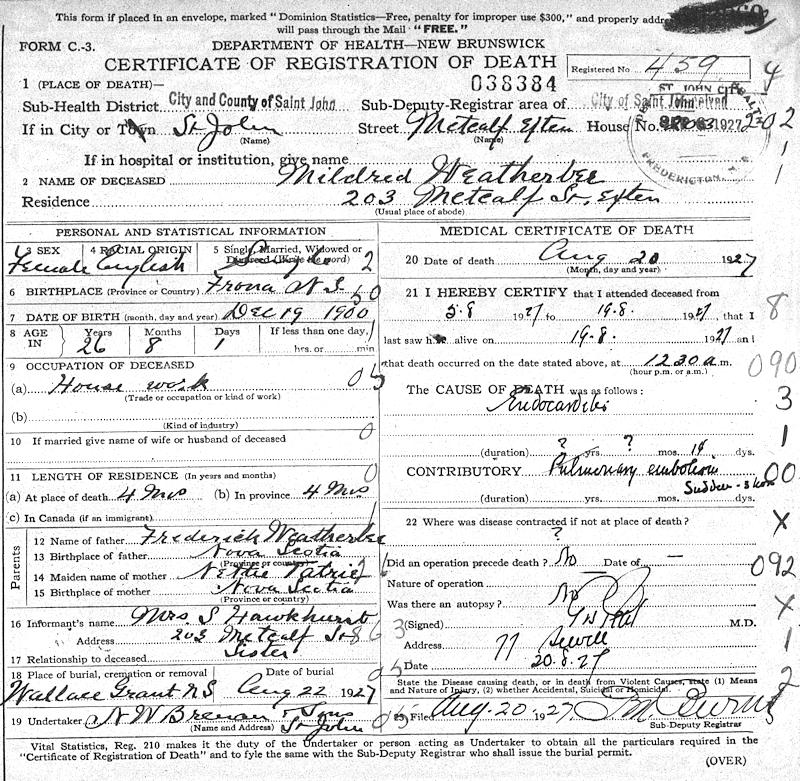 This form if placed in an envelope, marked "Dominion Statistics—Free, penalty for improper use $300," and properly
will pass through the Mail "FREE."
FORM C.-3. DEPARTMENT OF HEALTH—NEW BRUNSWICK
CERTIFICATE OF REGISTRATION OF DEATH Registered No 459 4
1 (PLACE OF DEATH)— 038384
Sub-Health District City and County of Saint John Sub-Deputy-Registrar area of City of Saint John
If in City or Town St John Street Metcalf Exten House No. 202
(Name) (Name)
FREDERICTON, N. B.
If in hospital or institution, give name 1
2 NAME OF DECEASED Mildred Weatherbee 1
Residence 203 Metcalf St. Exten
(Usual place of abode)
PERSONAL AND STATISTICAL INFORMATION
3 SEX 4 RACIAL ORIGIN 5 Single, Married, Widowed or
Divorced (Write the word)
Female English 2
6 BIRTHPLACE (Province or Country) N S 50
7 DATE OF BIRTH (month, day and year) Dec 19 1900
8 AGE Years Months Days If less than one day,
IN 26 8 1 hrs. or min
9 OCCUPATION OF DECEASED
(a) House work
(Trade or occupation or kind of work)
(b)
(Kind of industry)
10 If married give name of wife or husband of deceased 0
11 LENGTH OF RESIDENCE (In years and months) 0
(a) At place of death 4 Mos (b) In province 4 Mos
(c) In Canada (if an immigrant)
Parents
12 Name of father Frederick Weatherbee
13 Birthplace of father Nova Scotia
(Province or country)
14 Maiden name of mother Nettie
15 Birthplace of mother Nova Scotia
(Province or country)
16 Informant's name Mrs. S Hawkhurst
Address 203 Metcalf St
17 Relationship to deceased Sister
18 Place of burial, cremation or removal Date of burial
Wallace Grant N.S Aug 22 1927
19 Undertaker N W Brenan & Sons
(Name and Address) St John
MEDICAL CERTIFICATE OF DEATH
20 Date of death Aug 20 1927
(Month, day and year)
21 I HEREBY CERTIFY that I attended deceased from
5.8 1927 to 19.8. 1927, that I 8
last saw h alive on 19.8. 1927 an
that death occurred on the date stated above, at 12 30 a m. 090
(hour p.m. or a.m.)
The CAUSE OF DEATH was as follows: 3
Endocarditis
1
(duration) ? yrs. ? mos. 14 dys.
CONTRIBUTORY Pulmonary embolism 00
Sudden
(duration) yrs. mos. dys.
22 Where was disease contracted if not at place of death? X
?
Did an operation precede death? No Date of — 092
Nature of operation
Was there an autopsy? No X
(Signed) M.D.
Address 1
Date 20.8.27
State the Disease causing death, or in death from Violent Causes, state (1) Means 2
and Nature of Injury, (2) whether Accidental, Suicidal or Homicidal.
23 Filed Aug 20 1927 Burns
Sub-Deputy Registrar
Vital Statistics, Reg. 210 makes it the duty of the Undertaker or person acting as Undertaker to obtain all the particulars required in the
"Certificate of Registration of Death" and to fyle the same with the Sub-Deputy Registrar who shall issue the burial permit.
(OVER)